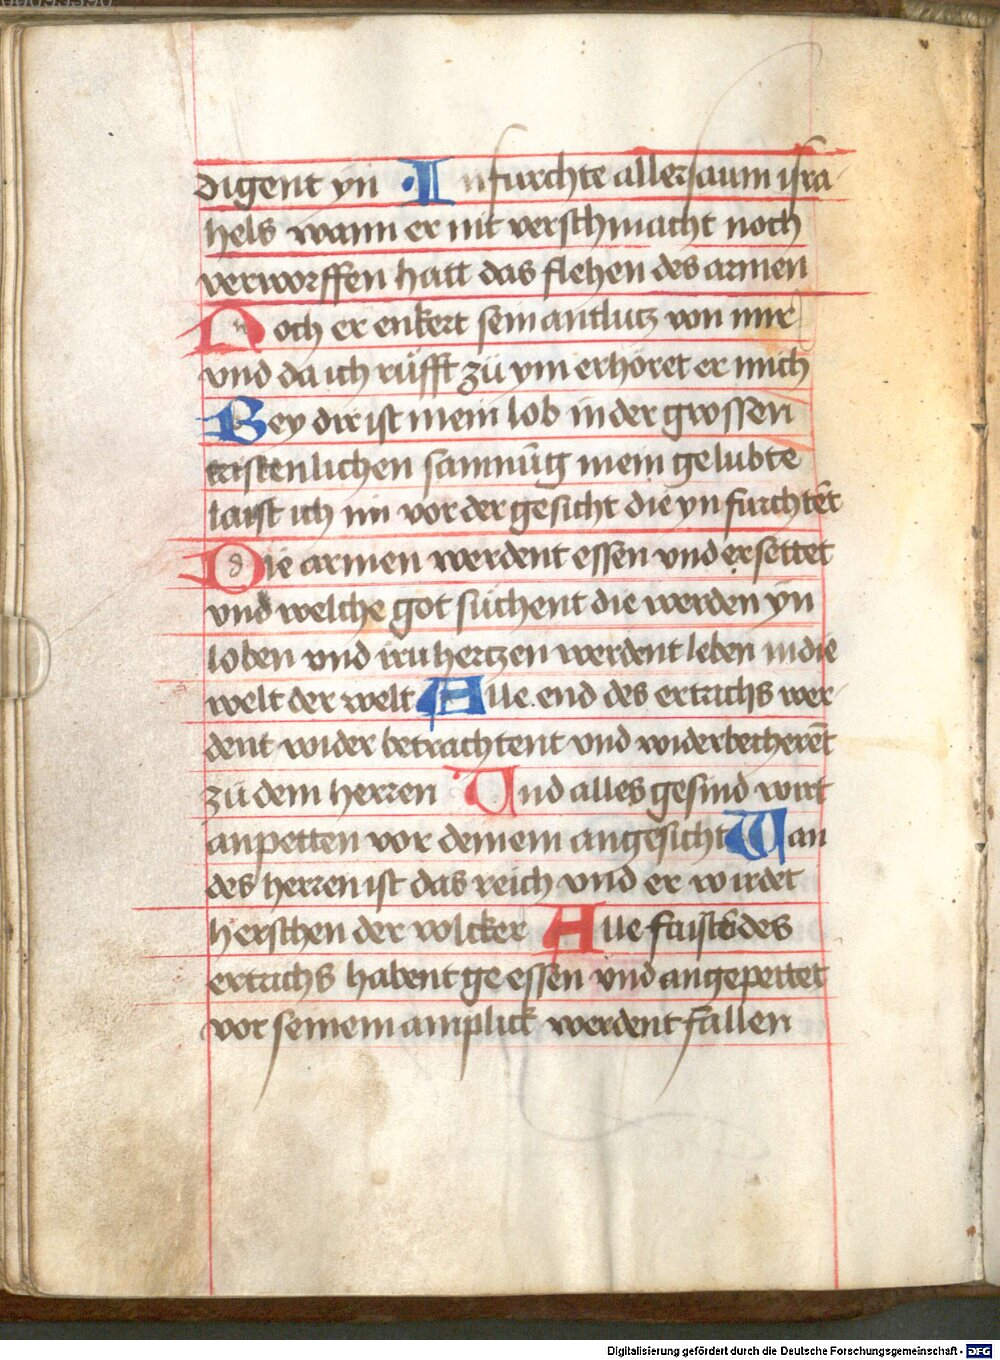 digent yn · In furchte aller saum isra-
hels wann er nit verschmacht noch
verworffen hatt das flehen des armen
Noch er enkert sein antlutz von mir
vnd da ich rüfft zü ym erhöret er mich
Bey dir ist mein lob in der grossen
kristenlichen samnūg mein gelubte
laist ich im vor der gesicht die yn furchtēt
Die armen werdent essen vnd ersettet
vnd welche got süchent die werden yn
loben vnd iru hertzen werdent leben in die
welt der welt Alle end des ertrichs wer-
dent wider betrachtent vnd widerbecherēt
zü dem herren Vnd alles gesind wirt
anpetten vor deinem angesicht Wan
des herren ist das reich vnd er wirdet
herschen der volcker Alle faistē des
ertrichs habent ge essen vnd angepettet
vor seinem amplick werdent fallen
Digitalisierung gefördert durch die Deutsche Forschungsgemeinschaft - DFG